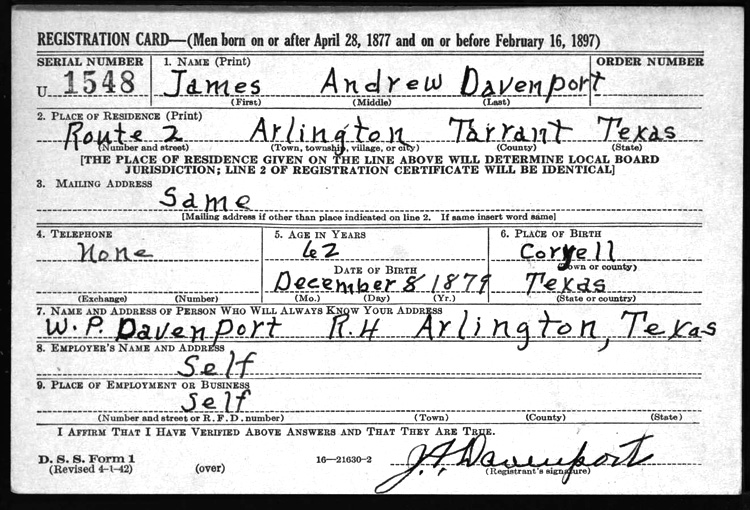 REGISTRATION CARD—(Men born on or after April 28, 1877 and on or before February 16, 1897)
SERIAL NUMBER 1. NAME (Print) ORDER NUMBER
U 1548 James Andrew Davenport
(First) (Middle) (Last)
2. PLACE OF RESIDENCE (Print)
Route 2 Arlington Tarrant Texas
(Number and street) (Town, township, village, or city) (County) (State)
[THE PLACE OF RESIDENCE GIVEN ON THE LINE ABOVE WILL DETERMINE LOCAL BOARD
JURISDICTION; LINE 2 OF REGISTRATION CERTIFICATE WILL BE IDENTICAL]
3. MAILING ADDRESS
Same
[Mailing address if other than place indicated on line 2. If same insert word same]
4. TELEPHONE 5. AGE IN YEARS 6. PLACE OF BIRTH
None 62 Coryell
(Town or county)
DATE OF BIRTH
December 8 1879 Texas
(Exchange) (Number) (Mo.) (Day) (Yr.) (State or country)
7. NAME AND ADDRESS OF PERSON WHO WILL ALWAYS KNOW YOUR ADDRESS
W. P. Davenport R. 4 Arlington, Texas
8. EMPLOYER'S NAME AND ADDRESS
Self
9. PLACE OF EMPLOYMENT OR BUSINESS
Self
(Number and street or R. F. D. number) (Town) (County) (State)
I AFFIRM THAT I HAVE VERIFIED ABOVE ANSWERS AND THAT THEY ARE TRUE.
D. S. S. Form 1
(Revised 4-1-42) (over) 16—21630-2 J. A. Davenport
(Registrant's signature)